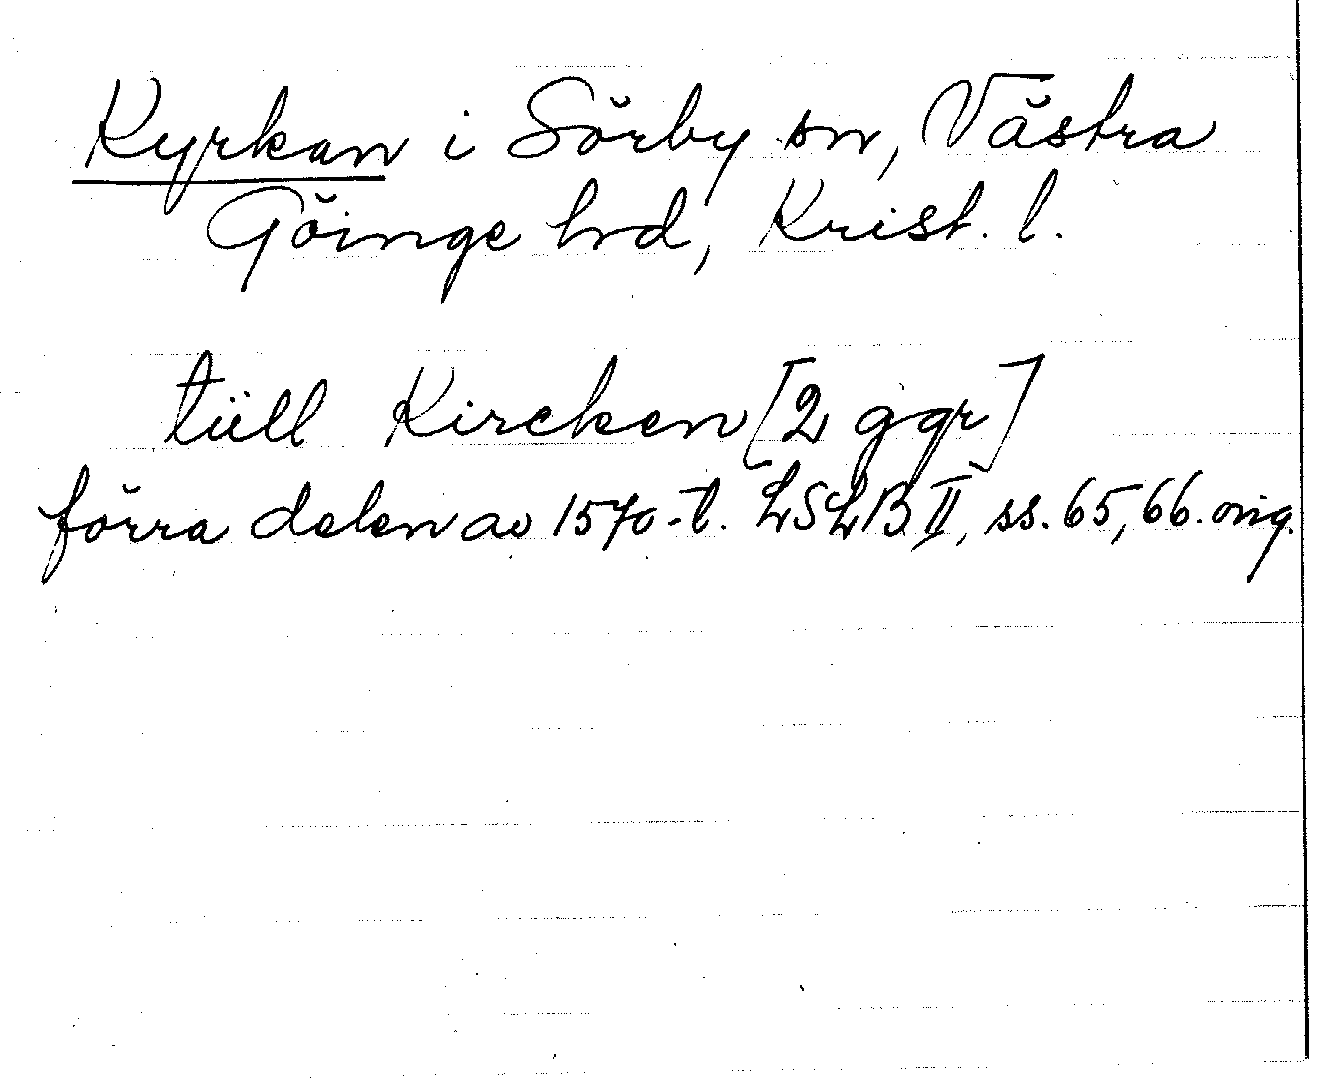 Kyrkan i Sörby sn, Västra
Göinge hrd, Krist. l.
tüll Kircken [2 ggr]
förra delen av 1570-t. LSLB II, ss. 65, 66. orig.